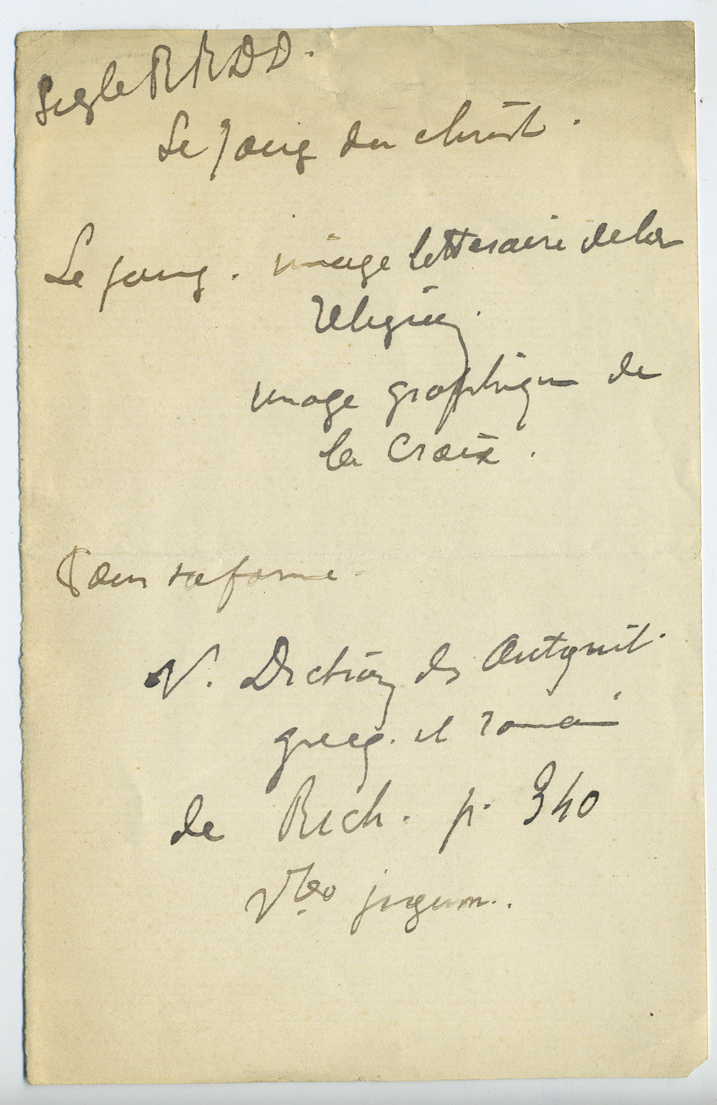 Sigle RRDD.
Le Joug du christ.
Le joug. image litteraire de la
religion.
image graphique de
la Croix.
sa forme.
V. Diction des Antiquit.
grecq. et romain
de Rich. p. 340
Vbo jugum.